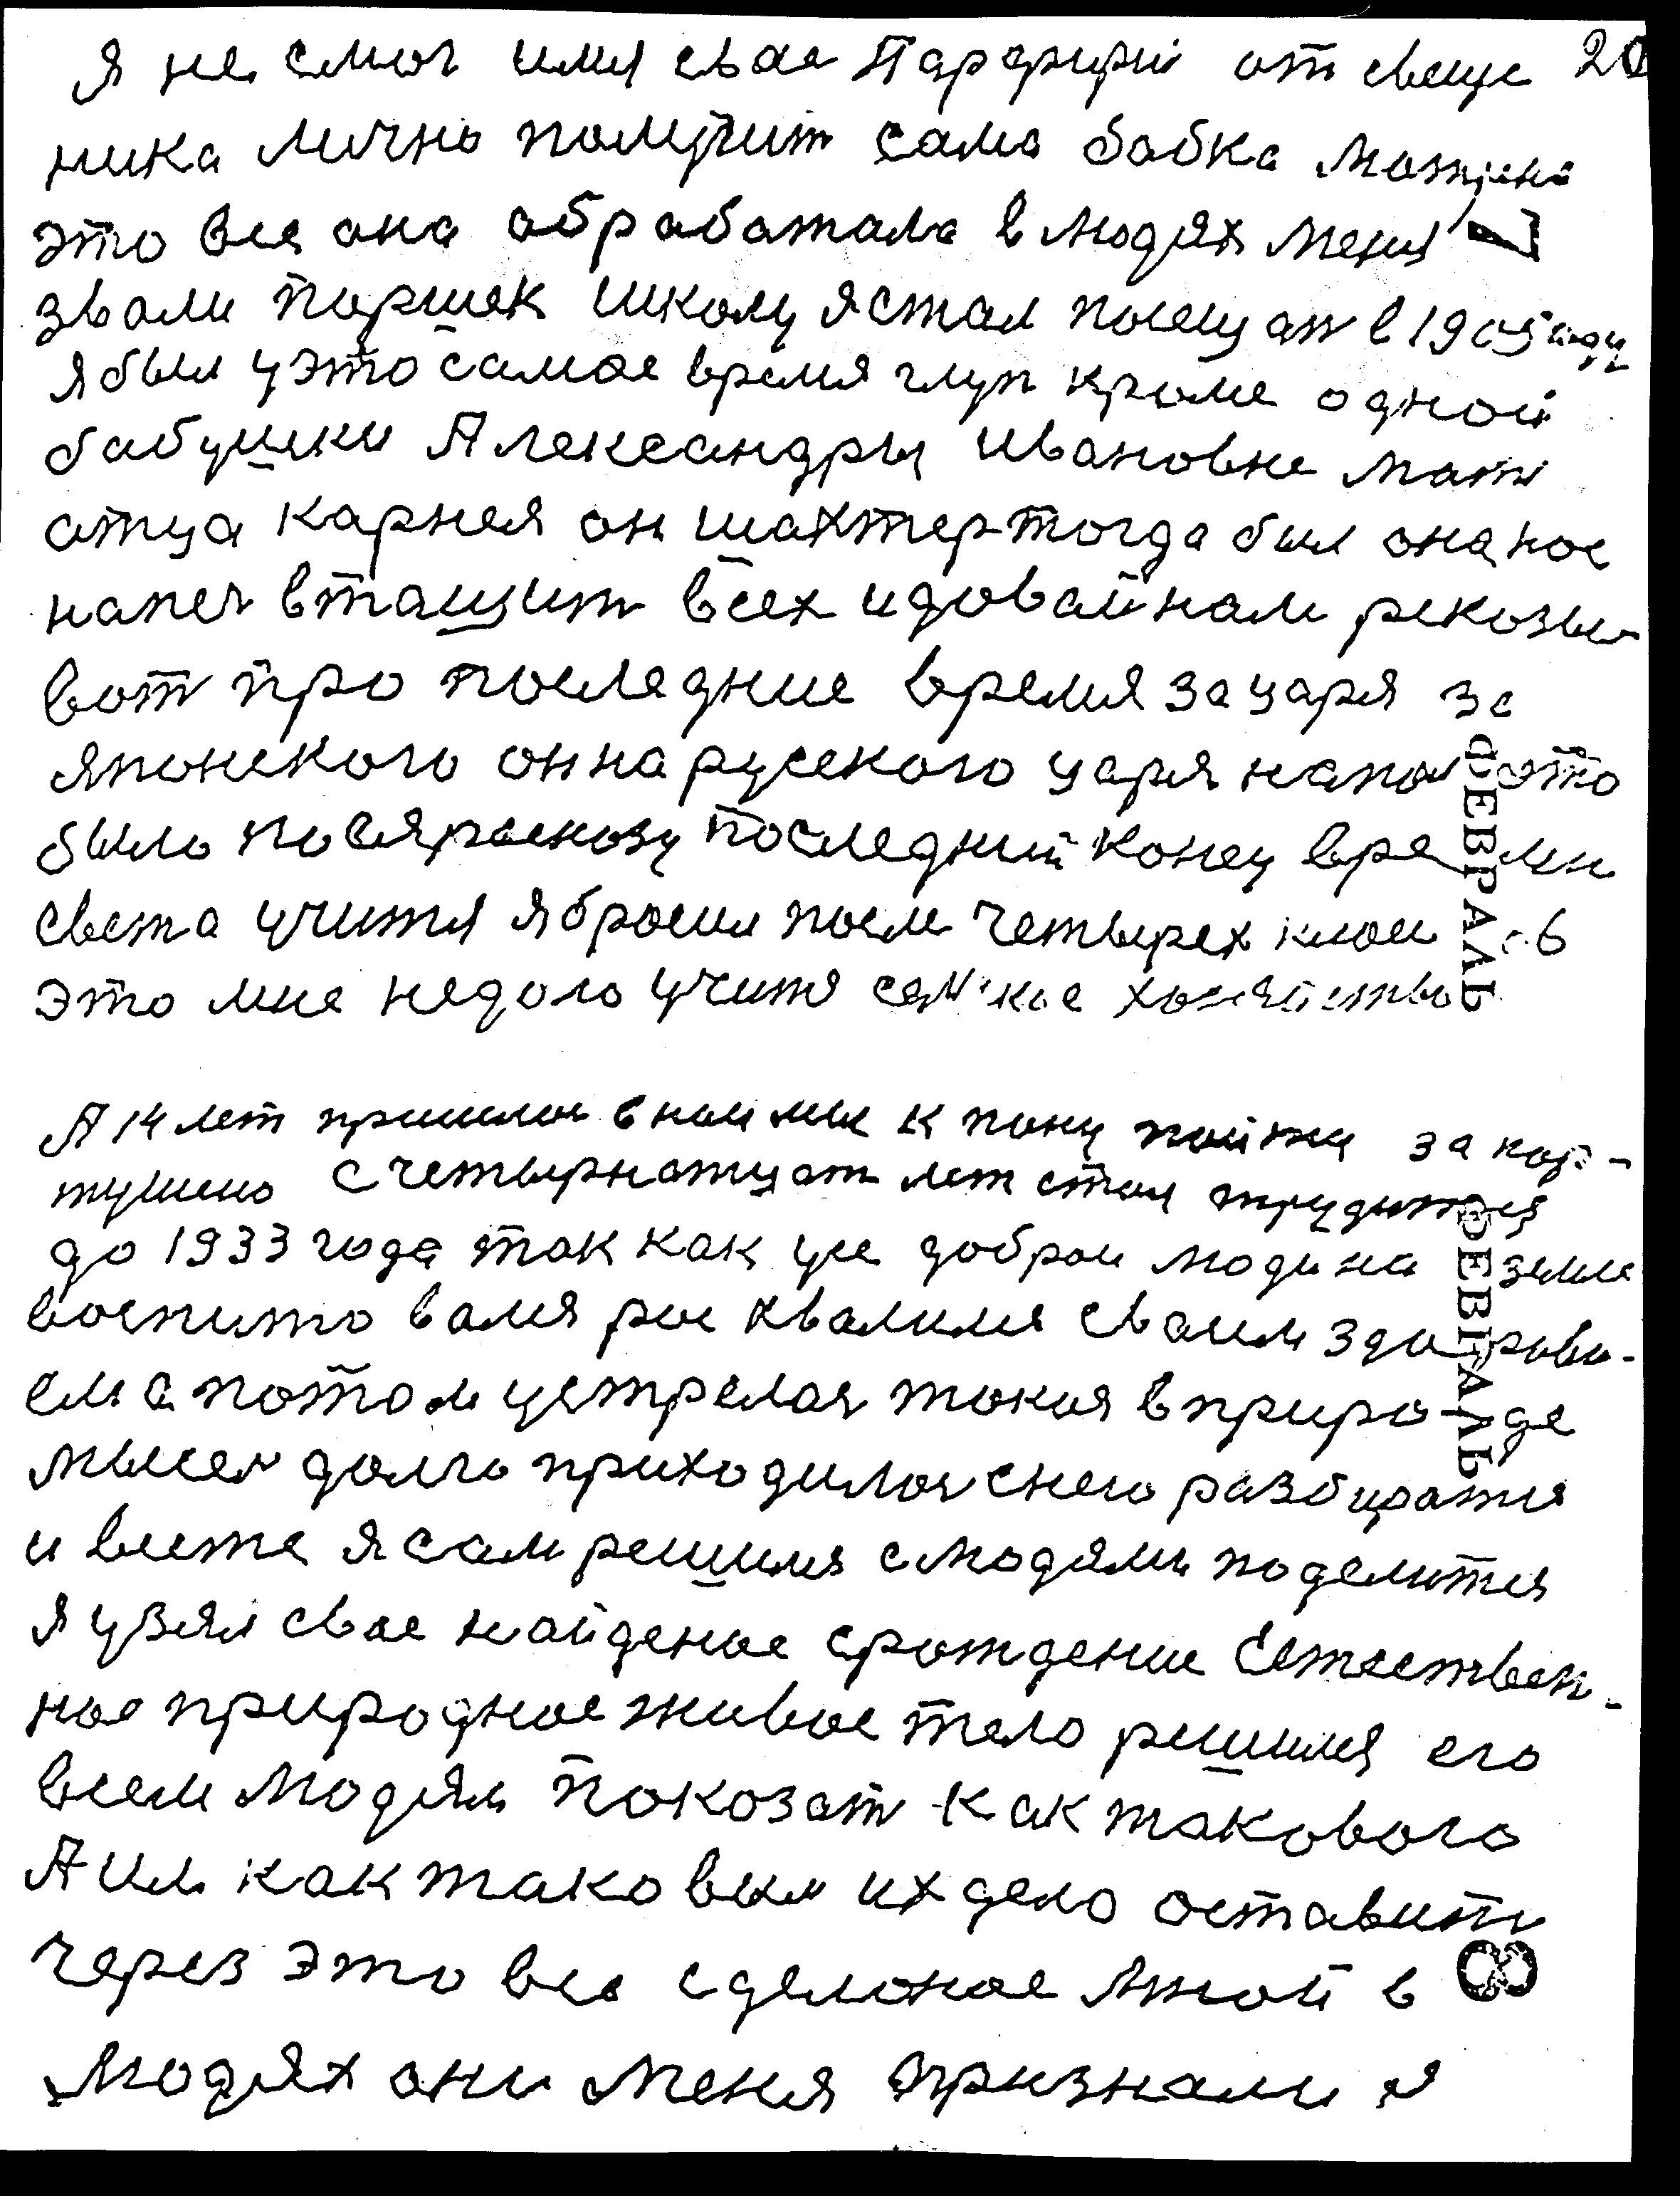 Я не смог имя свое Парфирй от свеще 20
ника лично получит сама бабка
это вся она обработала в людях меня 7
звали Паршек школу я стал посещат в 1905 году
я был у это самое время глуп кроме одной
бабушки Александры Ивановне мать
отца Карнея он шахтер тогда был она нас
напеч втащит всех и довай нам рекозы-
ват про последние время за царя за
японского он на русского царя напал это
было по ея роскозу последний конец времи
света учится я бросил после четырех класов
это мне недало учится хозяйство
ФЕВРАЛЬ
А 14 лет пришлос к пану пойти за кар-
тушено с четырнатцат лет стал трудится
до 1933 года так как усе доброи люди на земле
воспито валя рос хвалился своим здаровь-
ем а потом устрелас токая в природе
мысел долго приходилос снего разбиратся
и вместе я сам решился слюдями поделится
я узял свое найденое срождение Естествен-
ное природное живое тело решился его
всем людям показат как такового
А им как таковым их дело оставить
через это все сделоное мной в 8
людях они меня признали я
ФЕВРАЛЬ